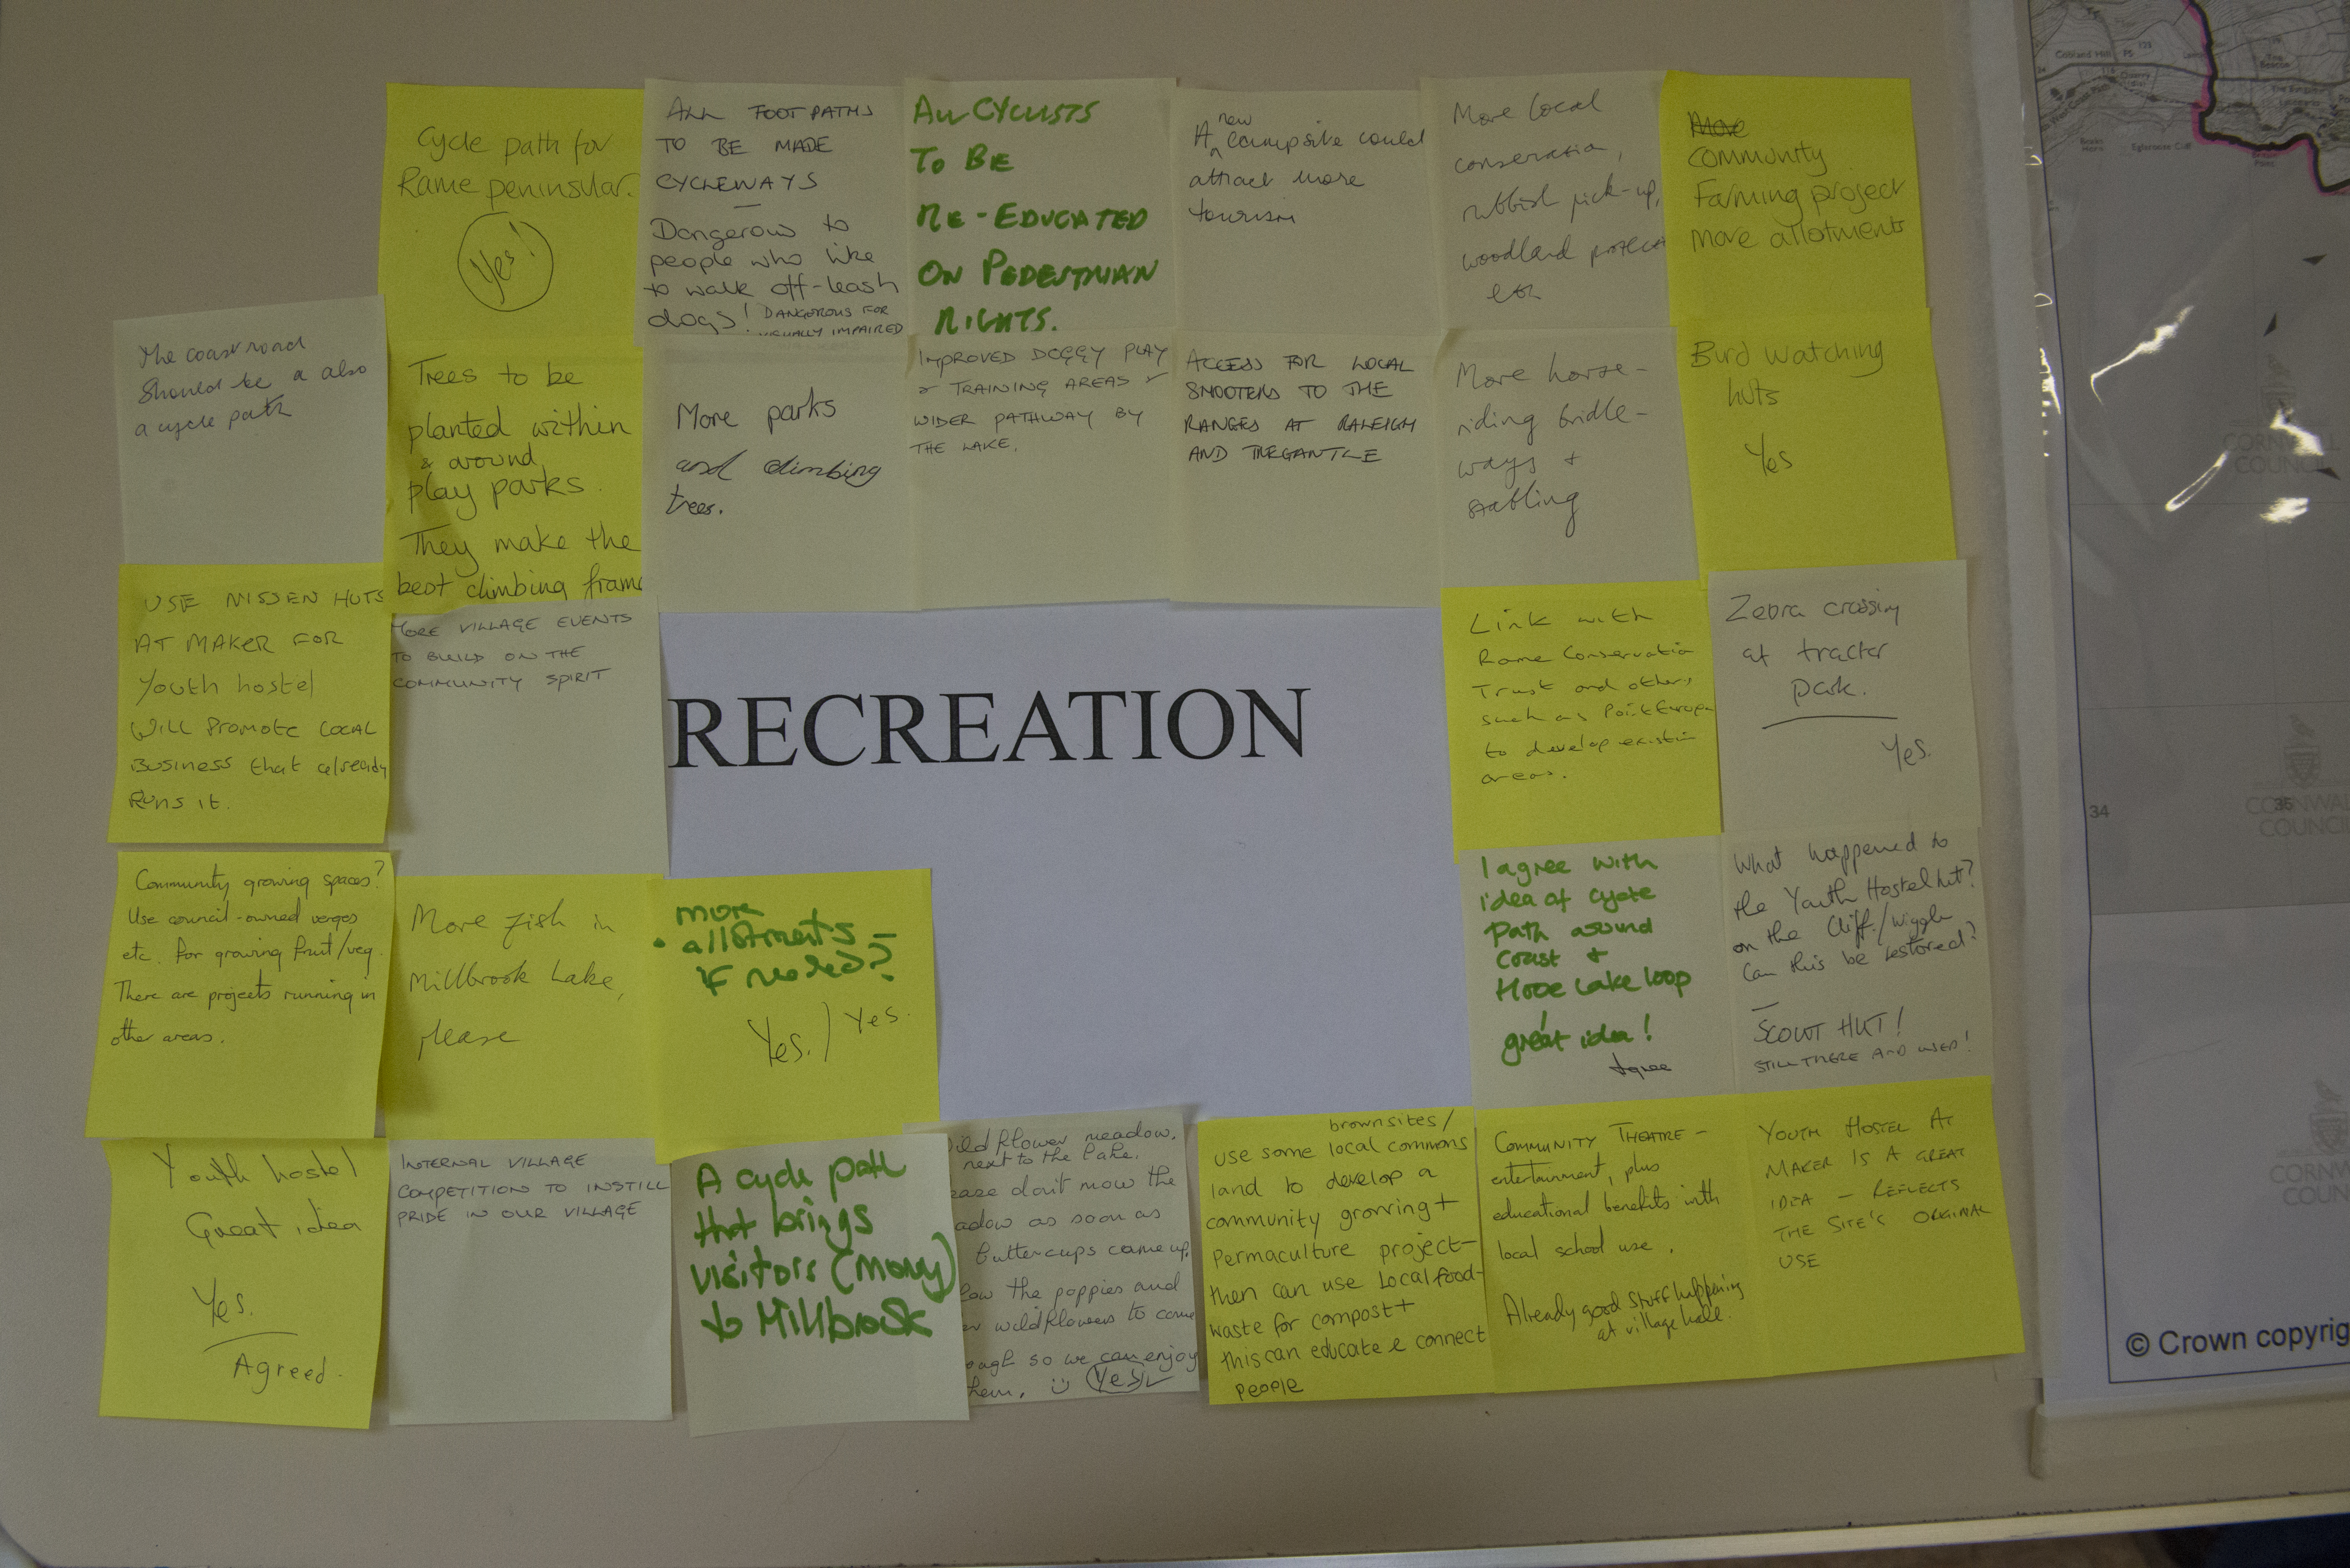 Cycle path for
Rame peninsular.
Yes!
ALL FOOTPATHS
TO BE MADE
CYCLEWAYS
Dangerous to
people who like
to walk off-leash
dogs! DANGEROUS FOR
VISUALLY IMPAIRED
ALL CYCLISTS
TO BE
RE-EDUCATED
ON PEDESTRIAN
RIGHTS.
new
A campsite could
attract more
tourism
More local
conservation,
rubbish pick-up,
woodland protect
etc
More
Community
Farming project
More allotments
The coast road
Should be a also
a cycle path
Trees to be
planted within
& around
play parks.
They make the
best climbing frame
More parks
and climbing
trees.
IMPROVED DOGGY PLAY
& TRAINING AREAS &
WIDER PATHWAY BY
THE LAKE.
ACCESS FOR LOCAL
SHOOTERS TO THE
RANGES AT RALEIGH
AND TREGANTLE
More horse-
riding bridle-
ways +
stabling
Bird watching
huts
Yes
USE NISSEN HUTS
AT MAKER FOR
Youth hostel
Will promote local
Business that already
Runs it.
MORE VILLAGE EVENTS
TO BUILD ON THE
COMMUNITY SPIRIT
RECREATION
Link with
Rame Conservation
Trust and others
such as Point Europa
to develop existin
areas.
Zebra crossing
at tractor
park.
Yes.
Community growing spaces?
Use council-owned verges
etc. for growing fruit/veg.
There are projects running in
other areas.
More fish in
Millbrook Lake,
please
more
allotments –
if needed?
Yes. / Yes.
I agree with
idea of cycle
Path around
Coast +
Hooe Lake loop
great idea!
Agree
What happened to
the Youth Hostel hut?
on the Cliff/wiggle
Can this be restored?
SCOUT HUT!
STILL THERE AND USED!
Youth hostel
Great idea
Yes.
Agreed.
INTERNAL VILLAGE
COMPETITION TO INSTILL
PRIDE IN OUR VILLAGE
A cycle path
that brings
visitors (money)
to Millbrook
ildflower meadow,
next to the lake.
ease don't mow the
adow as soon as
buttercups come up,
low the poppies and
er wildflowers to come
ough so we can enjoy
them. Yes
brownsites/
use some local commons
land to develop a
community growing +
Permaculture project –
then can use Local food-
waste for compost +
this can educate & connect
people
COMMUNITY THEATRE –
entertainment, plus
educational benefits with
local school use.
Already good stuff happening
at village hall.
YOUTH HOSTEL AT
MAKER IS A GREAT
IDEA – REFLECTS
THE SITE'S ORIGINAL
USE
CORNWALL
COUNCIL
34
36
CORNWALL
COUNCIL
CORNW
COUN
© Crown copyrig